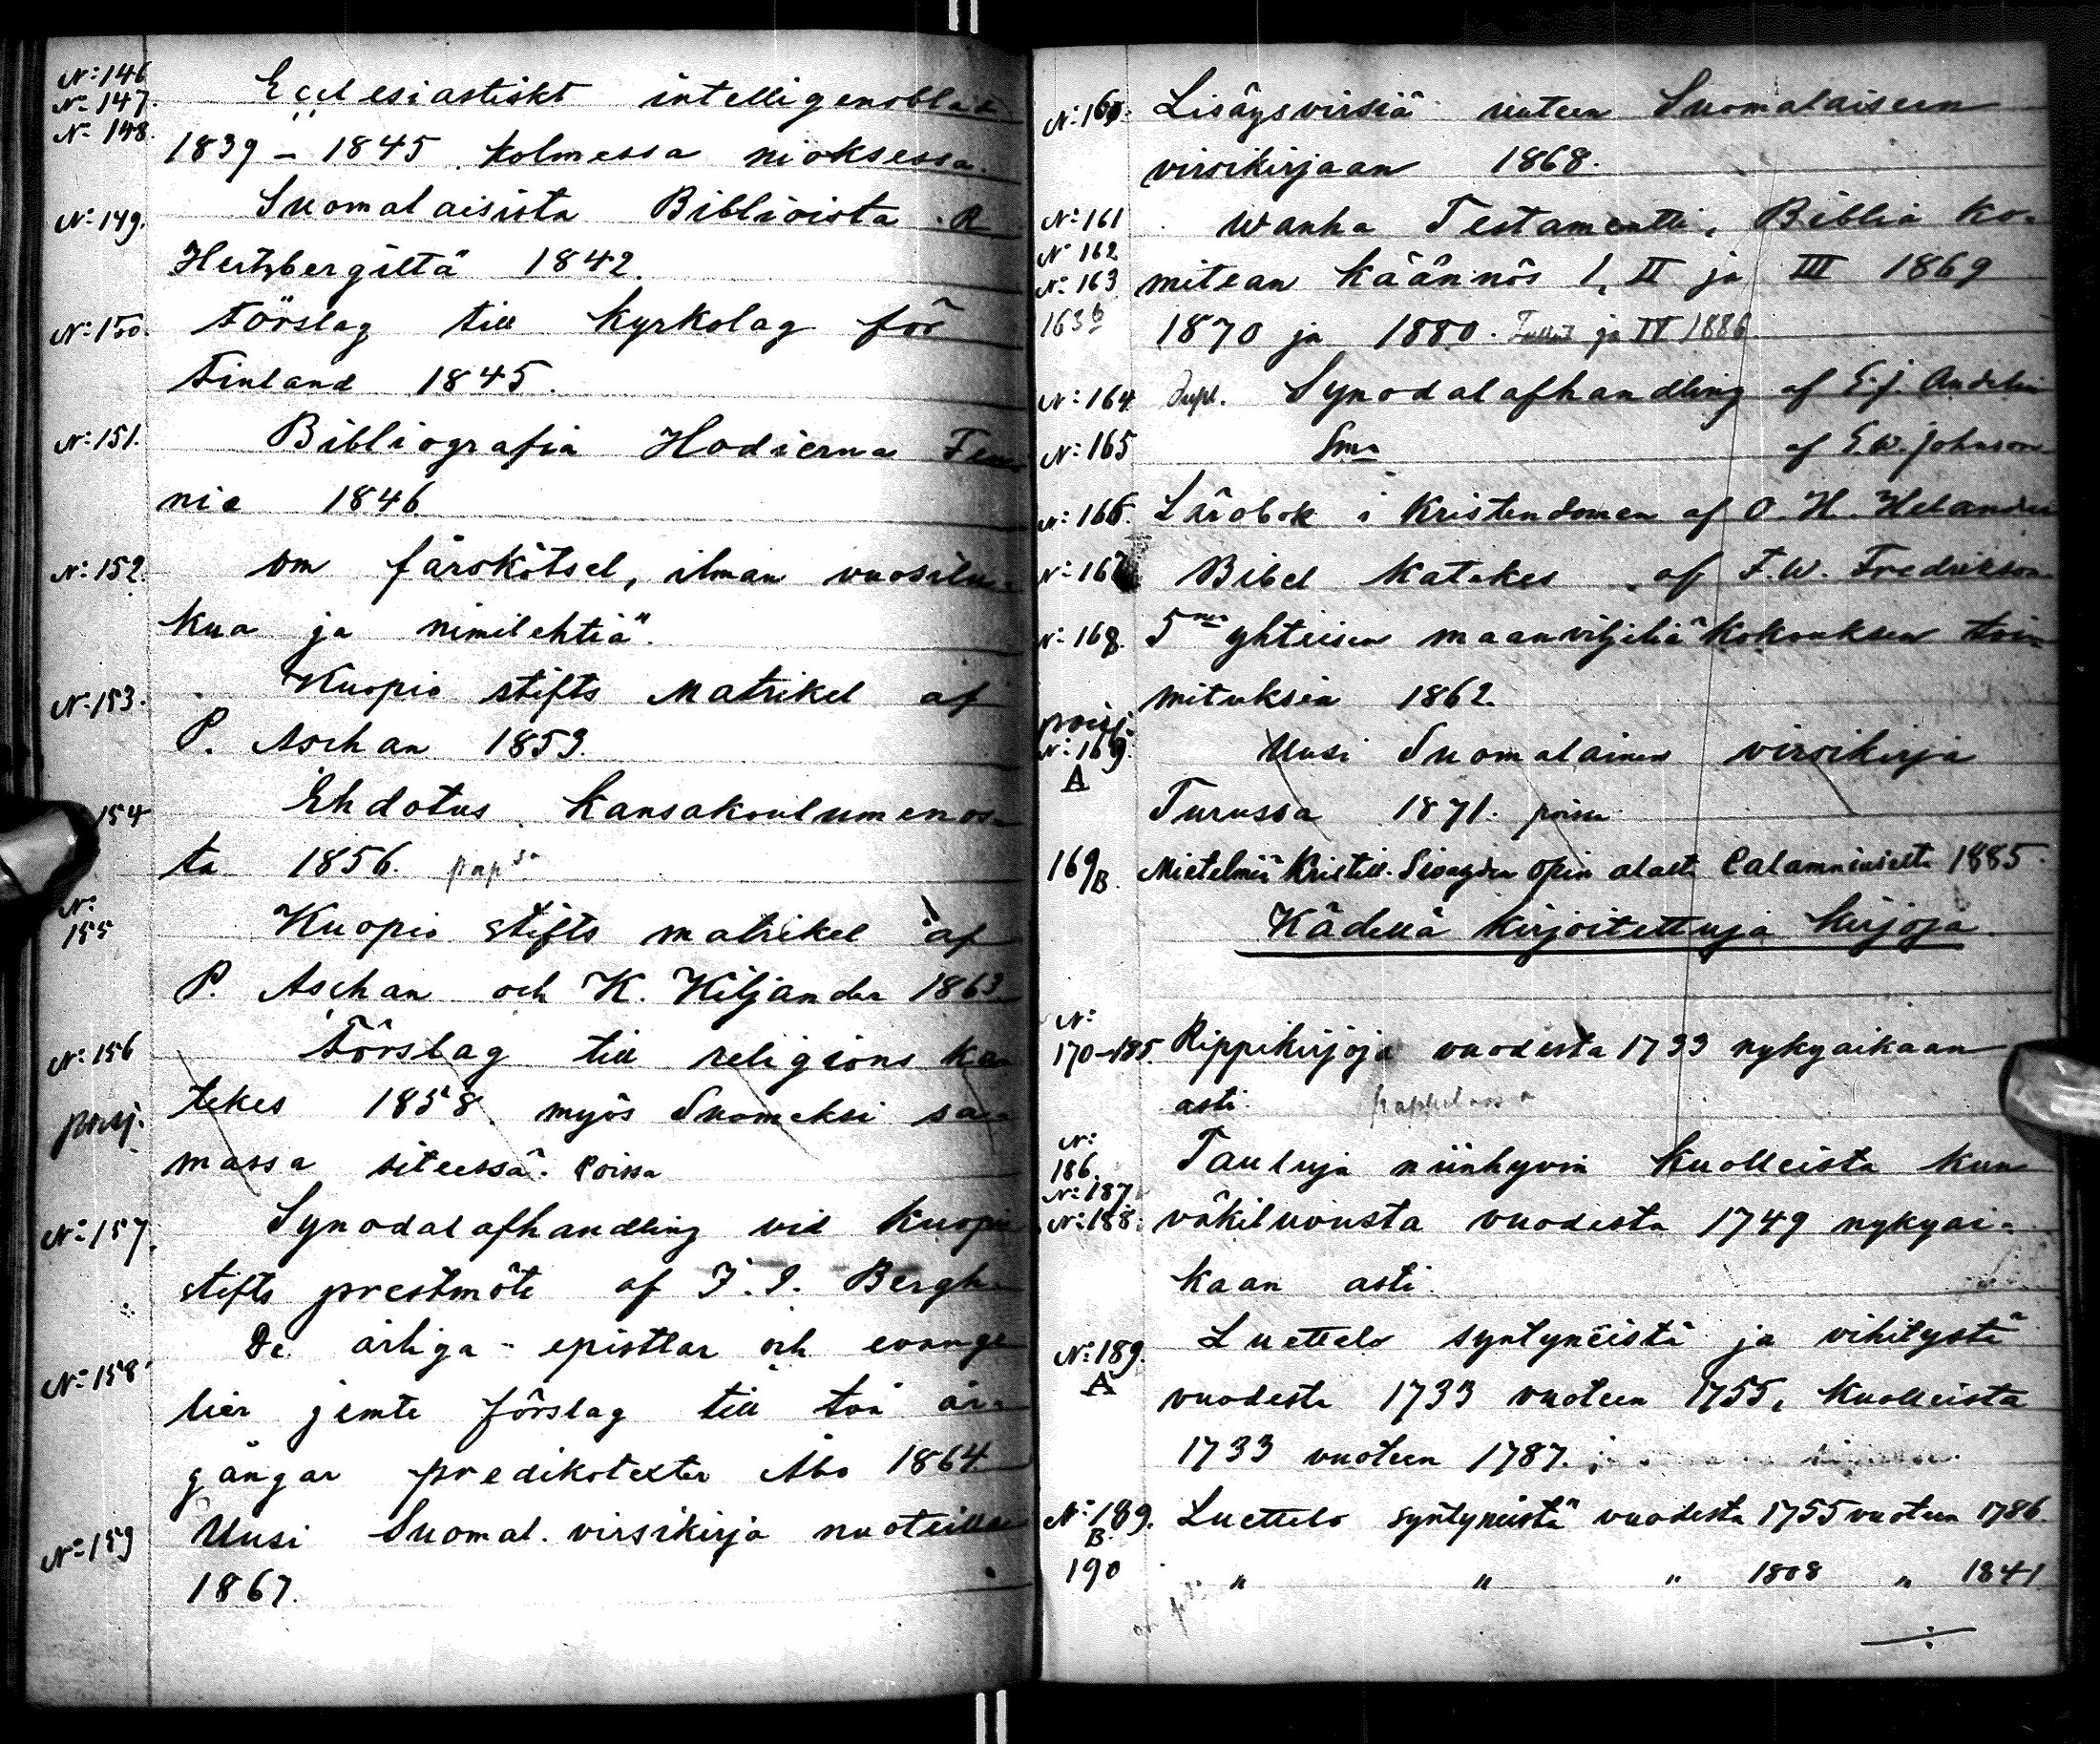 N:o 146
N:o 147.
N:o 148.
Ecclesiastiskt intelligensblat
1839 - 1845 kolmessa nioksessa.
N:o 149. Suomalaisista Biblioista R
Hertzbergiltä 1842.
N:o 150. Förslag till Kyrkolag för
Finland 1845.
N:o 151. Bibliografia Hodierna Fen
nie 1846
N:o 152. Om fårskötsel, ilman vuosilu-
kua ja nimilehtiä.
N:o 153. Kuopio stifts Matrikel af
P. Aschan 1853.
154 Ehdotus Kansakoulumenos-
ta 1856.
N:o 155 Kuopio stifts matrikel af
P. Aschan och K. Kiljander 1863
N:o 156 Förslag till religions ka-
poisj. tekes 1858. myös Suomeksi sa-
massa siteessä. Poissa
N:o 157. Synodalafhandling vid Kuopio
stifts prestmöte af J. I. Bergh.
N:o 158 De årliga - epistlar och evange
lier jemte förslag till två år-
gångar predikotexter Åbo 1864
N:o 159 Uusi Suomal. virsikirja nuoteilla
1867.
N:o 160. Lisäysvirsiä uuteen Suomalaiseen
virsikirjaan 1868.
N:o 161 Wanha Testamentti, Biblia Ko-
N:o 162
N:o 163 mitean Käännös I, II ja III 1869
163b 1870 ja 1880. ja II 1886
N:o 164 Dupl. Synodalafhandling af E. J. Andelin
N:o 165 Sma af E. W. Johnson
N:o 166. Lärobok i Kristendomen af O. H. Helander
N:o 167. Bibel Katekes af F. W. Fredrikson
N:o 168. 5nen yhteisen maanviljeliä Kokouksen toi-
mituksia 1862.
poisj.
N:o 169. A Uusi Suomalainen virsikirja
Turussa 1871. poissa
169 B. Mietelmiä Kristill. Siveyden opin alalta Calamniukselta 1885.
Kädellä Kirjoitettuja Kirjoja.
N:o
170-185. Rippikirjoja vuodesta 1733 nykyaikaan
asti. kappelissa
N:o
186. Tauluja niinhyvin Kuolleista kun
N:o 187
N:o 188. väkiluvusta vuodesta 1749 nykyai-
kaan asti.
N:o 189. A Luettelo syntyneistä ja vihitystä
vuodesta 1733 vuoteen 1755, Kuolleista
1733 vuoteen 1787.
N:o 189. B. Luettelo syntyneistä vuodesta 1755 vuoteen 1786.
190 " " " 1808 " 1841